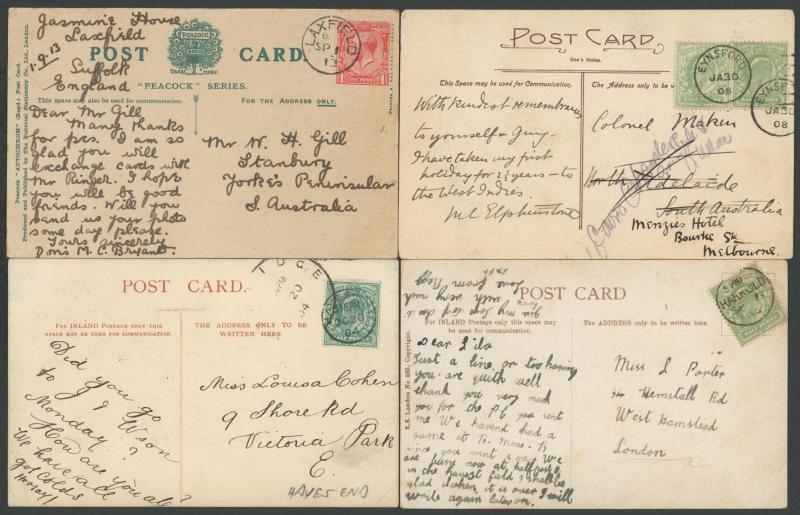 Jasmine House
Laxfield
1.9.13
Suffolk
England
PEACOCK
TRADE MARK
POST CARD.
"PEACOCK" SERIES.
This space may also be used for communication.
FOR THE ADDRESS ONLY.
LAXFIELD
SP 1
13
Dear Mr Gill
Many thanks
for pcs. I am so
glad you will
exchange cards with
Mr Ringer. I hope
you will be good
friends. Will you
send us your photo
some day please.
Yours sincerely
Doris M. C. Bryant.
Mr W. H. Gill
Stanbury
Yorke's Peninsular
S. Australia
Peacock "AUTOCHROM" (Regd.) Post Card.
Produced and Published by The Pictorial Stationery Co., Ltd., London.
POST CARD.
Gee's Series.
This Space may be used for Communication.
The Address only to be
EYNSFORD
JA 30
08
EYNSFORD
JA 30
08
With kindest remembrances
to yourself & Guy.
I have taken my first
holiday for 2½ years - to
the West Indies.
M C Elphinstone
Colonel Makin
North Adelaide
South Australia
Menzies Hotel
Bourke St
Melbourne.
POST CARD.
FOR INLAND POSTAGE ONLY THIS SPACE
MAY BE USED FOR COMMUNICATION.
THE ADDRESS ONLY TO BE
WRITTEN HERE.
20
04
OC 20
04
Did you go
to J. Wson
Monday?
How are you all?
We have all
got colds
Hooray!
Miss Louisa Cohen
9 Shore Rd
Victoria Park
E.
HAYES END
love from Reg
with very much
POST CARD
For INLAND Postage only this space may
be used for communication.
The ADDRESS only to be written here.
HARROLD
Dear Ida
Just a line, or too hoping
you are quith well
thank you very much
you for the PC you sent
me We havent had a
game at
since you went a way We
are busy now at
in the hayest field I shall be
glad when it is over I will
write again later on.
Miss I Porter
Hemstall Rd
West Hamstead
London
E.S. London No 545. Copyright.